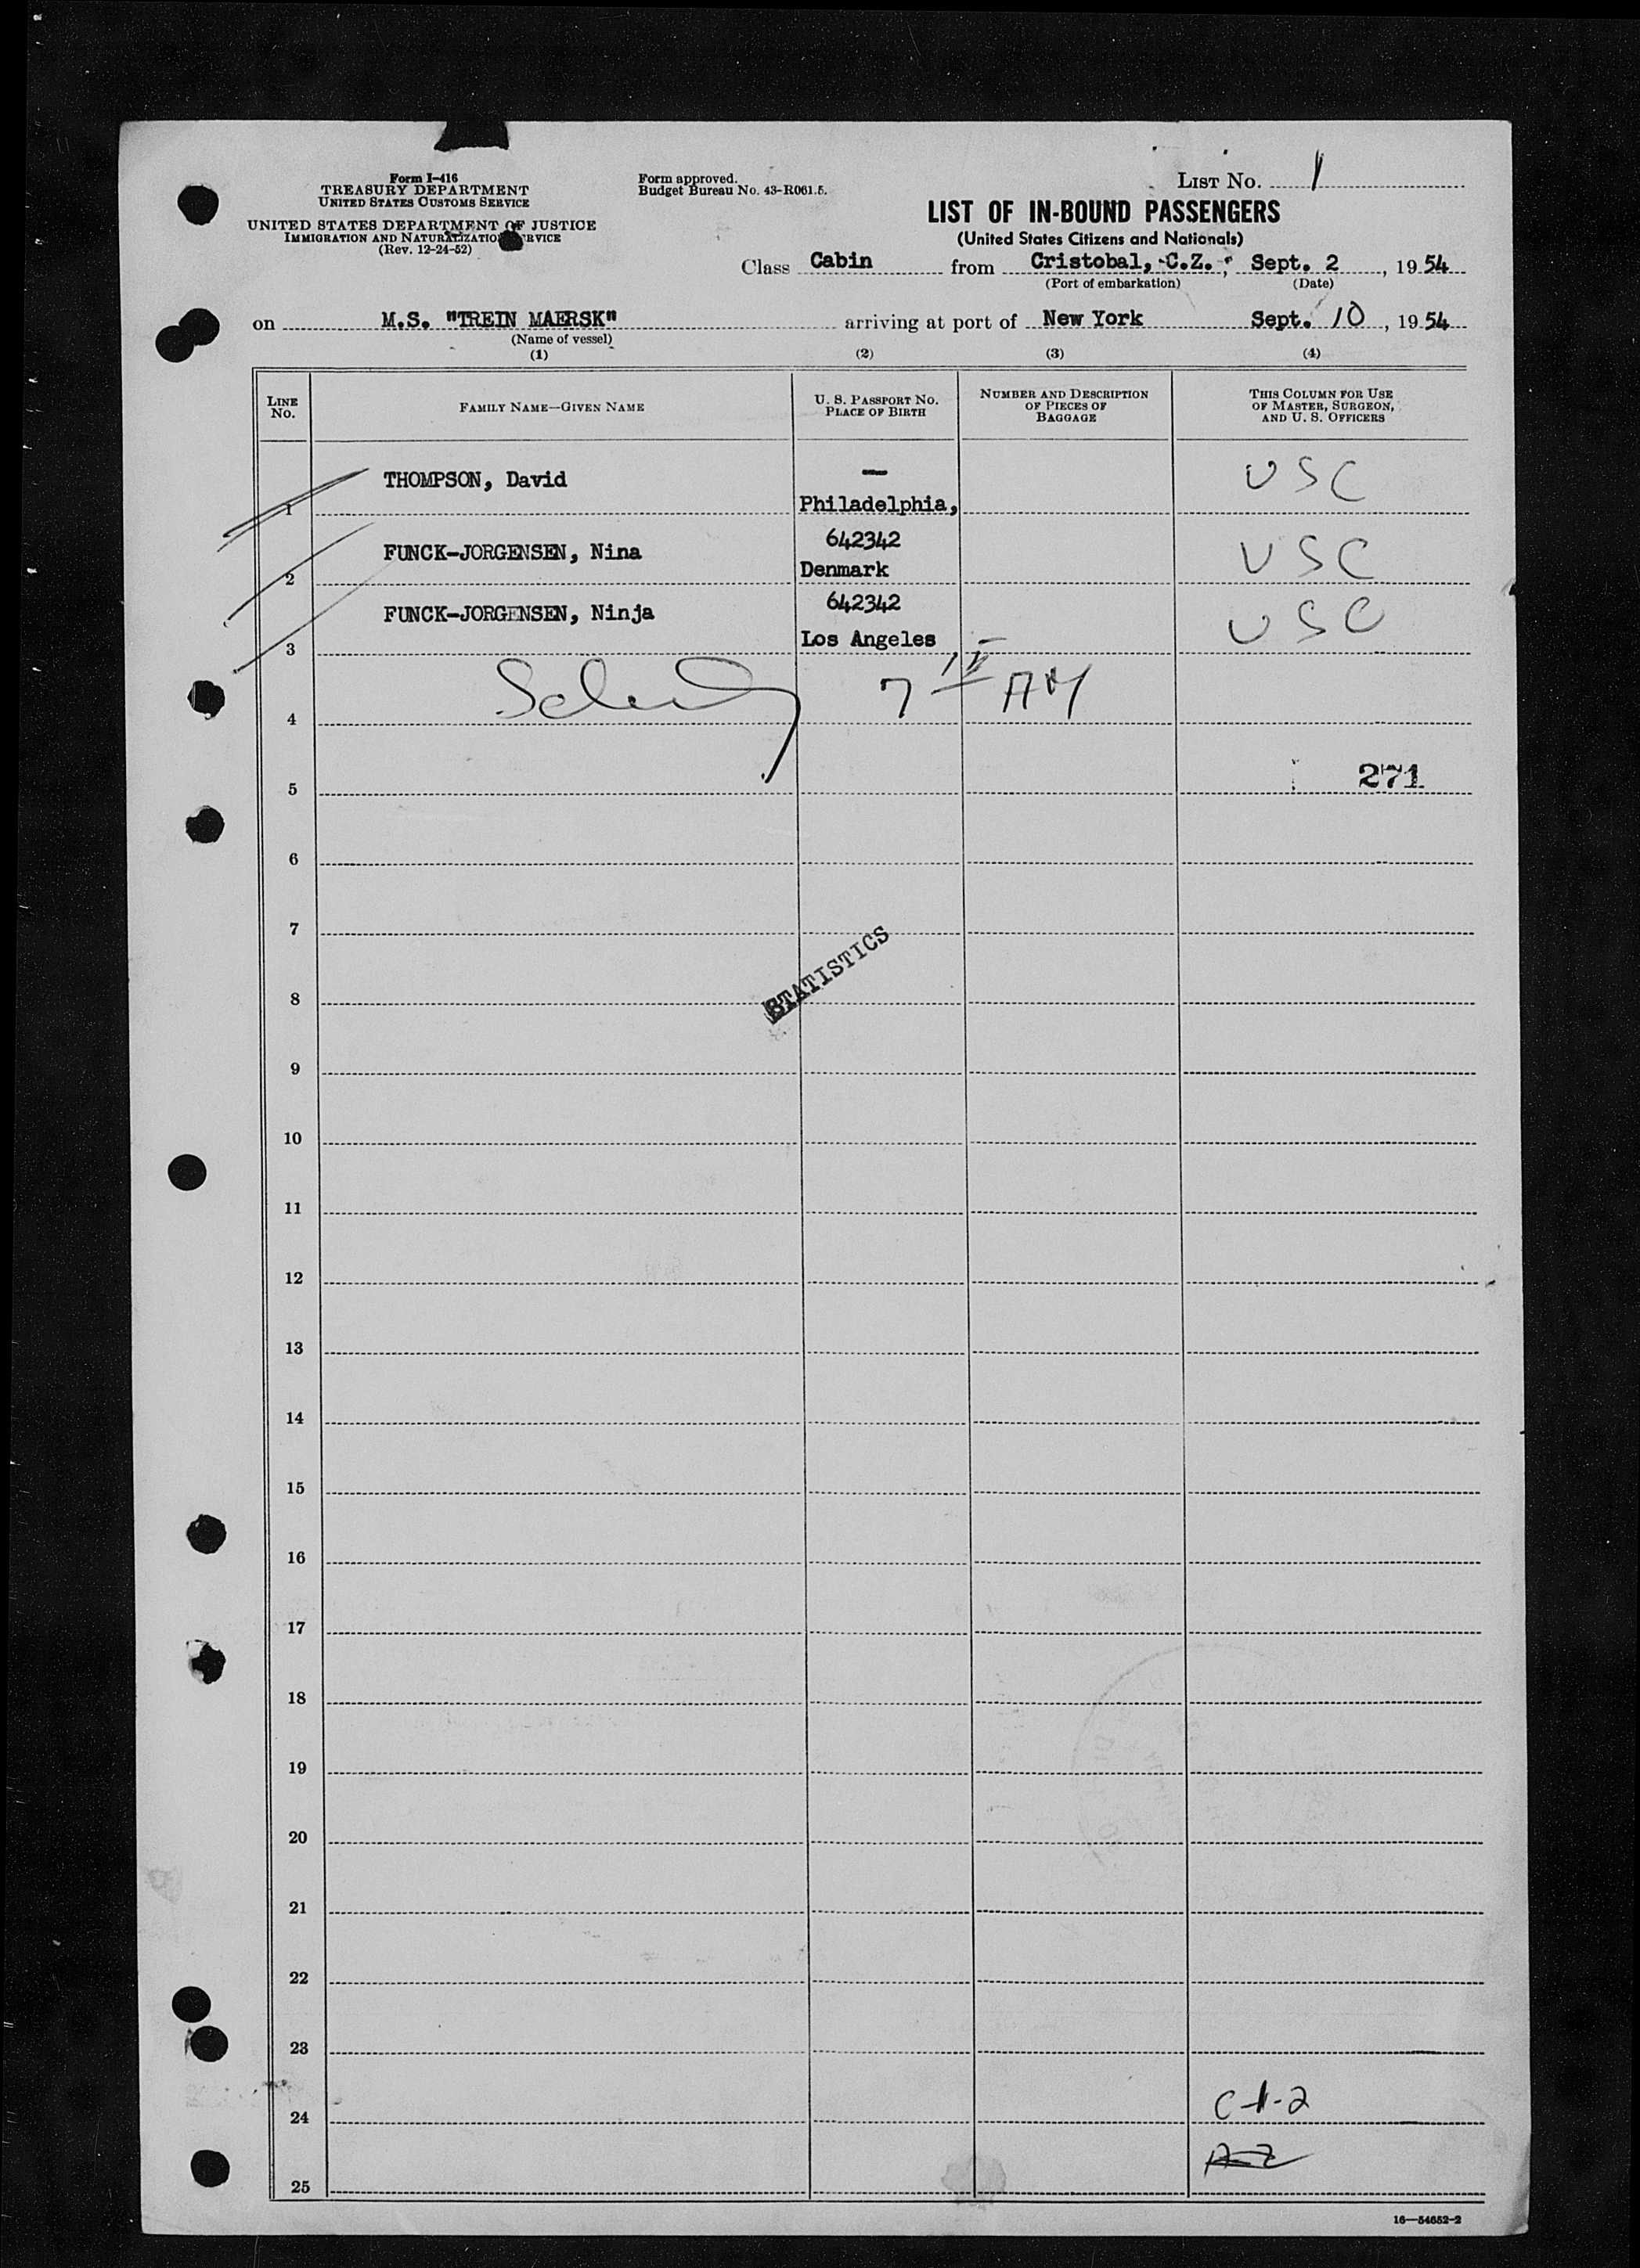 Form I-416
TREASURY DEPARTMENT
UNITED STATES CUSTOMS SERVICE
UNITED STATES DEPARTMENT OF JUSTICE
IMMIGRATION AND NATURALIZATION SERVICE
(Rev. 12-24-52)
Form approved.
Budget Bureau No. 43-R061.5.
LIST NO. 1
LIST OF IN-BOUND PASSENGERS
(United States Citizens and Nationals)
Class Cabin from Cristobal, C.Z., Sept. 2, 1954
(Port of embarkation) (Date)
on M.S. "TREIN MAERSK" arriving at port of New York Sept. 10, 1954
(Name of vessel)
(1) (2) (3) (4)
LINE NO. FAMILY NAME—GIVEN NAME U. S. PASSPORT NO. PLACE OF BIRTH NUMBER AND DESCRIPTION OF PIECES OF BAGGAGE THIS COLUMN FOR USE OF MASTER, SURGEON, AND U. S. OFFICERS
THOMPSON, David — USC
1 Philadelphia,
FUNCK-JORGENSEN, Nina 642342 USC
2 Denmark
FUNCK-JORGENSEN, Ninja 642342 USC
3 Los Angeles
4 7 AM
5 271
6
7
STATISTICS
8
9
10
11
12
13
14
15
16
17
18
19
20
21
22
23
24 C-1-2
25
16—54652-2